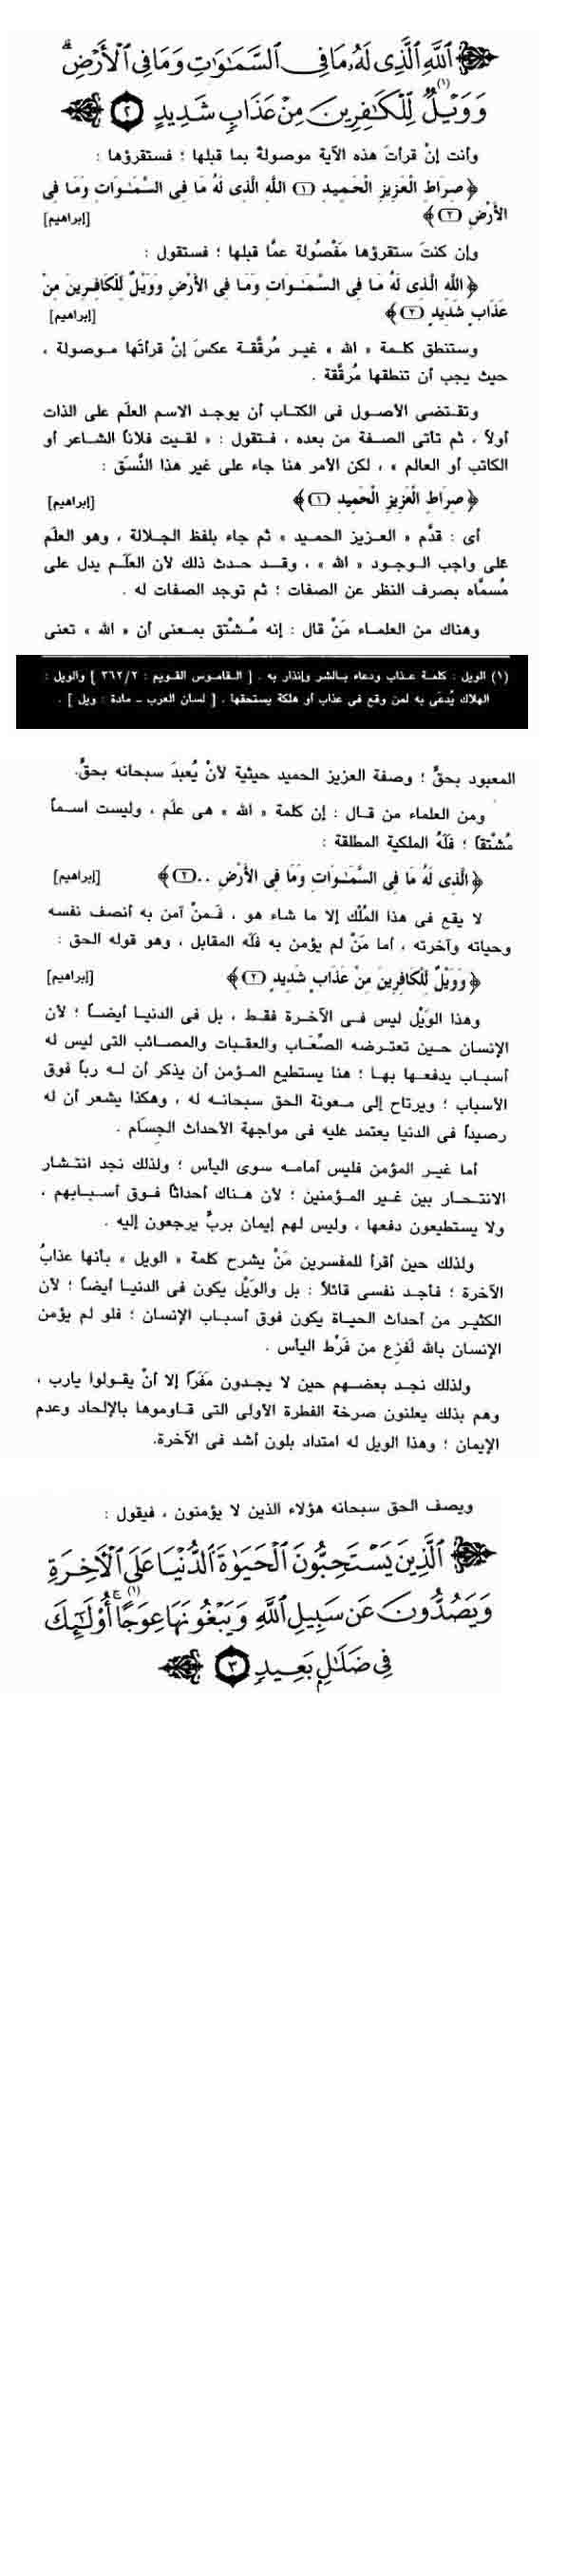 ٱللَّهِ ٱلَّذِى لَهُۥ مَا فِى ٱلسَّمَـٰوَٰتِ وَمَا فِى ٱلْأَرْضِ ۗ
وَوَيْلٌ (١) لِّلْكَـٰفِرِينَ مِنْ عَذَابٍ شَدِيدٍ ٢
وأنت إنْ قرأتَ هذه الآية موصولةً بما قبلها ؛ فستقرؤها :
﴿ صِرَاطِ الْعَزِيزِ الْحَمِيدِ (١) اللَّهِ الَّذِى لَهُ مَا فِى السَّمَـٰوَاتِ وَمَا فِى
الأَرْضِ (٢) ﴾ [إبراهيم]
وإن كنتَ ستقرؤها مَفْصُولة عمَّا قبلها ؛ فستقول :
﴿ اللَّه الَّذِى لَهُ مَا فِى السَّمَـٰوَاتِ وَمَا فِى الأَرْضِ وَوَيْلٌ لِّلْكَافِرِينَ مِنْ
عَذَابٍ شَدِيدٍ (٢) ﴾ [إبراهيم]
وستنطق كلمة « الله » غير مُرقَّقة عكسَ إنْ قرأتَها موصولة ،
حيث يجب أن تنطقها مُرقَّقة .
وتقتضى الأصول فى الكتاب أن يوجد الاسم العلَم على الذات
أولاً ، ثم تأتى الصفة من بعده ، فتقول : « لقيت فلاناً الشاعر أو
الكاتب أو العالم » ، لكن الأمر هنا جاء على غير هذا النَّسَق :
﴿ صِرَاطِ الْعَزِيزِ الْحَمِيدِ (١) ﴾ [إبراهيم]
أى : قدَّم « العزيز الحميد » ثم جاء بلفظ الجلالة ، وهو العلَم
على واجب الوجود « الله » ، وقد حدث ذلك لأن العلَم يدل على
مُسمَّاه بصرف النظر عن الصفات ؛ ثم توجد الصفات له .
وهناك من العلماء مَنْ قال : إنه مُشْتق بمعنى أن « الله » تعنى
(١) الويل : كلمة عذاب ودعاء بالشر وإنذار به . [ القاموس القويم : ٣٦٢/٢ ] والويل :
الهلاك يُدعَى به لمن وقع فى عذاب أو هلكة يستحقها . [ لسان العرب - مادة : ويل ] .
المعبود بحقٍّ ؛ وصفة العزيز الحميد حيثية لأنْ يُعبدَ سبحانه بحقٍّ.
ومن العلماء من قال : إن كلمة « الله » هى علَم ، وليست اسماً
مُشْتقاً ؛ فَلَهُ الملكية المطلقة :
﴿ الَّذِى لَهُ مَا فِى السَّمَـٰوَاتِ وَمَا فِى الأَرْضِ .. (٢) ﴾ [إبراهيم]
لا يقع فى هذا المُلْك إلا ما شاء هو ، فَمنْ آمن به أنصف نفسه
وحياته وآخرته ، أما مَنْ لم يؤمن به فلَه المقابل ، وهو قوله الحق :
﴿ وَوَيْلٌ لِّلْكَافِرِينَ مِنْ عَذَابٍ شَدِيدٍ (٢) ﴾ [إبراهيم]
وهذا الوَيْل ليس فى الآخرة فقط ، بل فى الدنيا أيضاً ؛ لأن
الإنسان حين تعترضه الصِّعَاب والعقبات والمصائب التى ليس له
أسباب يدفعها بها ؛ هنا يستطيع المؤمن أن يذكر أن له رباً فوق
الأسباب ؛ ويرتاح إلى معونة الحق سبحانه له ، وهكذا يشعر أن له
رصيداً فى الدنيا يعتمد عليه فى مواجهة الأحداث الجِسَام .
أما غير المؤمن فليس أمامه سوى اليأس ؛ ولذلك نجد انتشار
الانتحار بين غير المؤمنين ؛ لأن هناك أحداثاً فوق أسبابهم ،
ولا يستطيعون دفعها ، وليس لهم إيمان بربٍّ يرجعون إليه .
ولذلك حين أقرأ للمفسرين مَنْ يشرح كلمة « الويل » بأنها عذابُ
الآخرة ؛ فأجد نفسى قائلاً : بل والوَيْل يكون فى الدنيا أيضاً ؛ لأن
الكثير من أحداث الحياة يكون فوق أسباب الإنسان ؛ فلو لم يؤمن
الإنسان بالله لَفزِع من فَرْط اليأس .
ولذلك نجد بعضهم حين لا يجدون مَفَراً إلا أنْ يقولوا يارب ،
وهم بذلك يعلنون صرخة الفطرة الأولى التى قاوموها بالإلحاد وعدم
الإيمان ؛ وهذا الويل له امتداد بلون أشد فى الآخرة.
ويصف الحق سبحانه هؤلاء الذين لا يؤمنون ، فيقول :
ٱلَّذِينَ يَسْتَحِبُّونَ ٱلْحَيَوٰةَ ٱلدُّنْيَا عَلَى ٱلْـَٔاخِرَةِ
وَيَصُدُّونَ عَن سَبِيلِ ٱللَّهِ وَيَبْغُونَهَا عِوَجًا (١) ۚ أُو۟لَـٰٓئِكَ
فِى ضَلَـٰلٍۭ بَعِيدٍ ٣